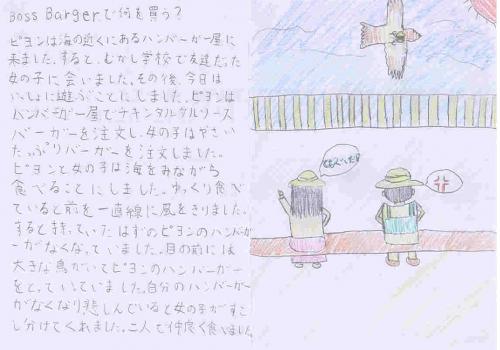 Boss Bargerで何を買う？
ピヨンは海の近くにあるハンバーガー屋に
来ました。すると、むかし学校で友達だった
女の子に会いました。その後、今日は
いっしょに遊ぶことにしました。ピヨンは
ハンバーガー屋でチキンタルタルソース
バーガーを注文し、女の子はやさい
たっぷりバーガーを注文しました。
ピヨンと女の子は海をみながら
食べることにしました。ゆっくり食べ
ていると前を一直線に風をきりました。
すると持っていたはずのピヨンのハンバーガ
ーがなくなっていました。目の前には
大きな鳥がいてピヨンのハンバーガー
をとっていっていました。自分のハンバーガー
がなくなり悲しんでいると女の子がすこ
し分けてくれました。二人で仲良く食べました。